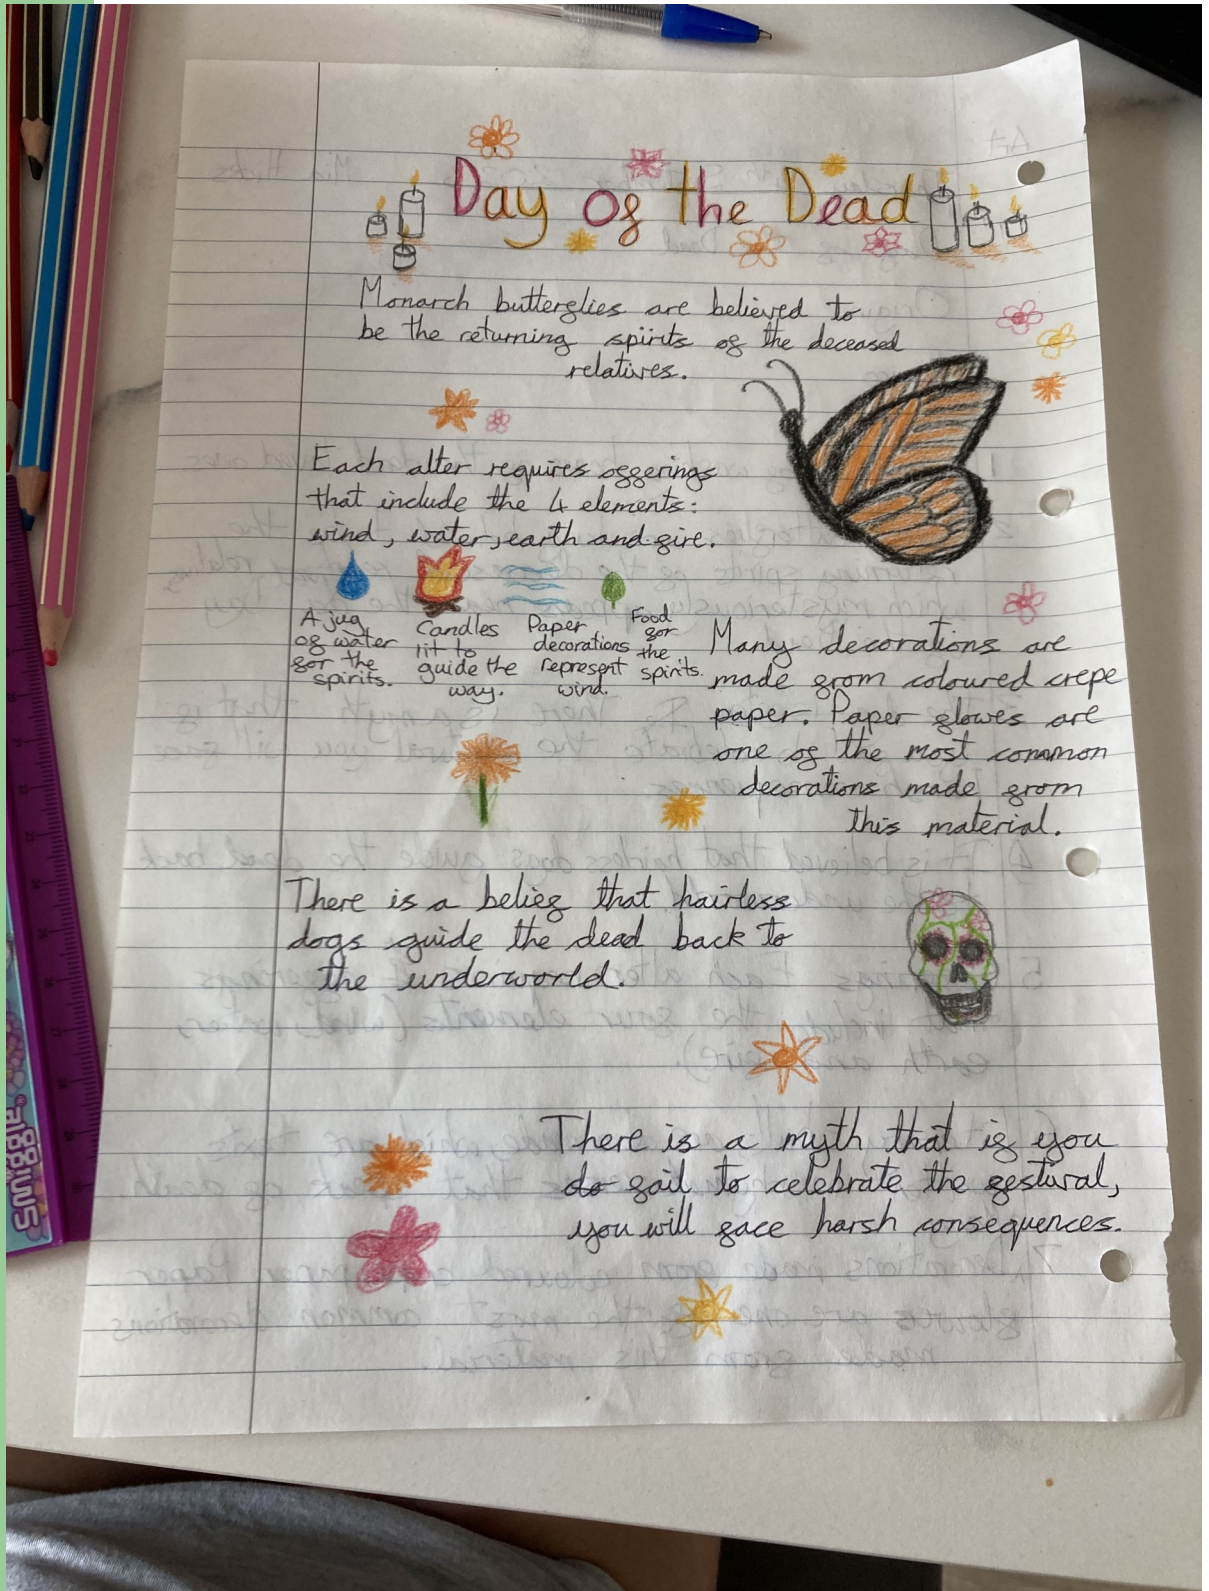 Day of the Dead
Monarch butterflies are believed to
be the returning spirits of the deceased
relatives.
Each alter requires offerings
that include the 4 elements:
wind, water, earth and fire.
A jug
of water
for the
spirits.
Candles
lit to
guide the
way.
Paper
decorations
represent
wind.
Food
for
the
spirits.
Many decorations are
made from coloured crepe
paper. Paper flowes are
one of the most common
decorations made from
this material.
There is a belief that hairless
dogs guide the dead back to
the underworld.
There is a myth that if you
do fail to celebrate the festival,
you will face harsh consequences.
Smiggle